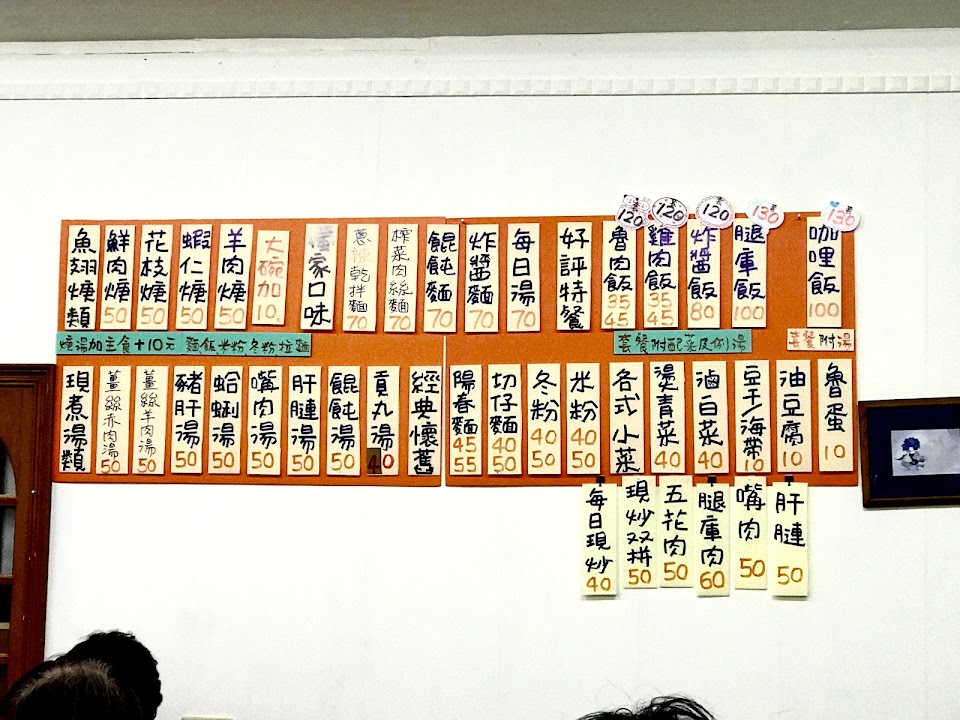 套120
套120
套120
套130
套130
魚翅焿類
鮮肉焿 50
花枝焿 50
蝦仁焿 50
羊肉焿 50
大碗加10.
懂家口味
蔥辣乾拌麵 70
榨菜肉絲麵 70
餛飩麵 70
炸醬麵 70
每日湯 70
好評特餐
魯肉飯 35 45
雞肉飯 35 45
炸醬飯 80
腿庫飯 100
咖哩飯 100
焿湯加主食+10元 麵飯米粉冬粉拉麵
套餐附配菜及例湯
套餐附湯
現煮湯類
薑絲赤肉湯 50
薑絲羊肉湯 50
豬肝湯 50
蛤蜊湯 50
嘴肉湯 50
肝腱湯 50
餛飩湯 50
貢丸湯 40
經典懷舊
陽春麵 45 55
切仔麵 40 50
冬粉 40 50
米粉 40 50
各式小菜
燙青菜 40
滷白菜 40
豆干/海帶 10
油豆腐 10
魯蛋 10
每日現炒 40
現炒双拼 50
五花肉 50
腿庫肉 60
嘴肉 50
肝腱 50